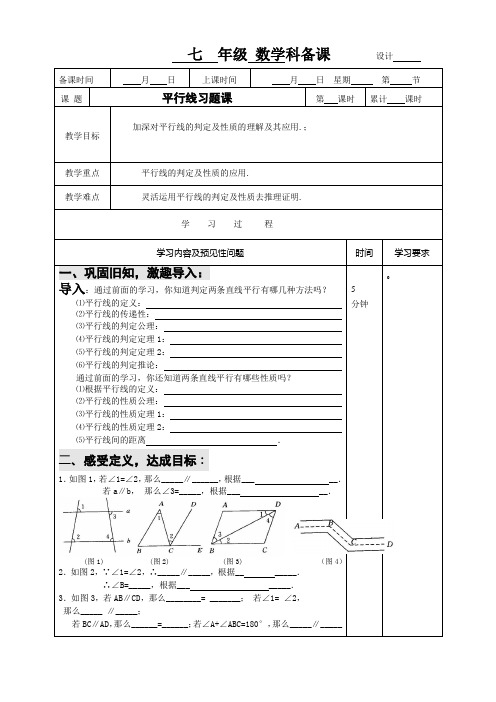 七 年级 数学科备课 设计______
备课时间 ____月____日 上课时间 ____月____日 星期____ 第____节
课 题 平行线习题课 第___课时 累计____课时
教学目标 加深对平行线的判定及性质的理解及其应用.；
教学重点 平行线的判定及性质的应用.
教学难点 灵活运用平行线的判定及性质去推理证明.
学 习 过 程
学习内容及预见性问题 时间 学习要求
一、巩固旧知，激趣导入：
导入：通过前面的学习，你知道判定两条直线平行有哪几种方法吗？
⑴平行线的定义：
⑵平行线的传递性：
⑶平行线的判定公理：
⑷平行线的判定定理1：
⑸平行线的判定定理2：
⑹平行线的判定推论：
通过前面的学习，你还知道两条直线平行有哪些性质吗？
⑴根据平行线的定义：
⑵平行线的性质公理：
⑶平行线的性质定理1：
⑷平行线的性质定理2：
⑸平行线间的距离 .
5
分钟
。
二、感受定义，达成目标：
1．如图1，若∠1=∠2，那么_____∥______，根据___ __．
若a∥b， 那么∠3=_____，根据___ __．
1 3 a 2 4 b
A D 1 2 B C E
A D 1 4 3 2 B C
A B C D
(图1) (图2) (图3) (图4)
2．如图2，∵∠1=∠2，∴_____∥_____，根据__ _____．
∴∠B=_____，根据___ _____．
3．如图3，若AB∥CD，那么________= _______； 若∠1= ∠2，
那么_____ ∥_____；
若BC∥AD，那么______=______；若∠A+∠ABC=180°，那么_____∥_____